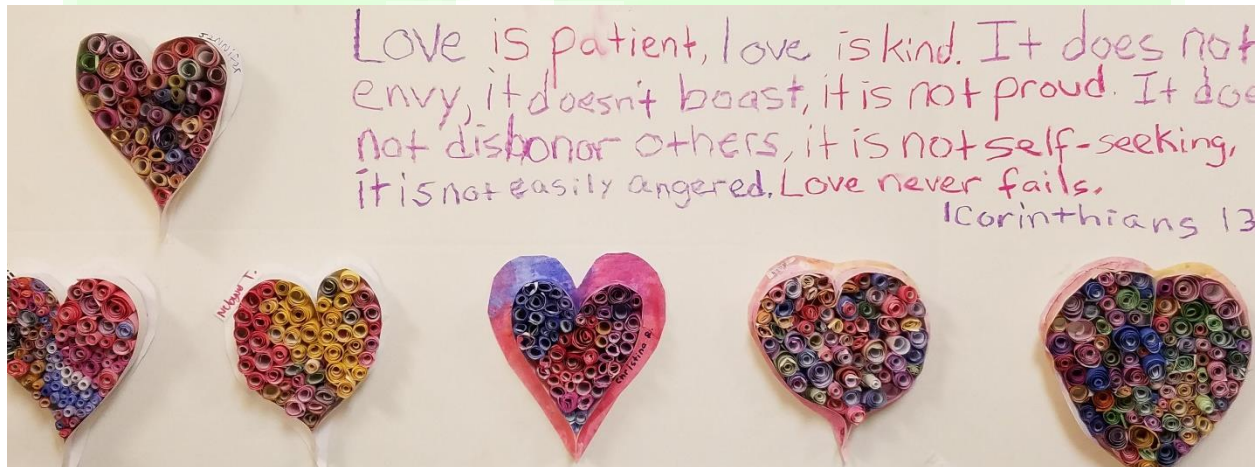 Love is patient, love is kind. It does not
envy, it doesn't boast, it is not proud. It doe
not dishonor others, it is not self-seeking,
it is not easily angered. Love never fails.
1 Corinthians 13
Christina B.